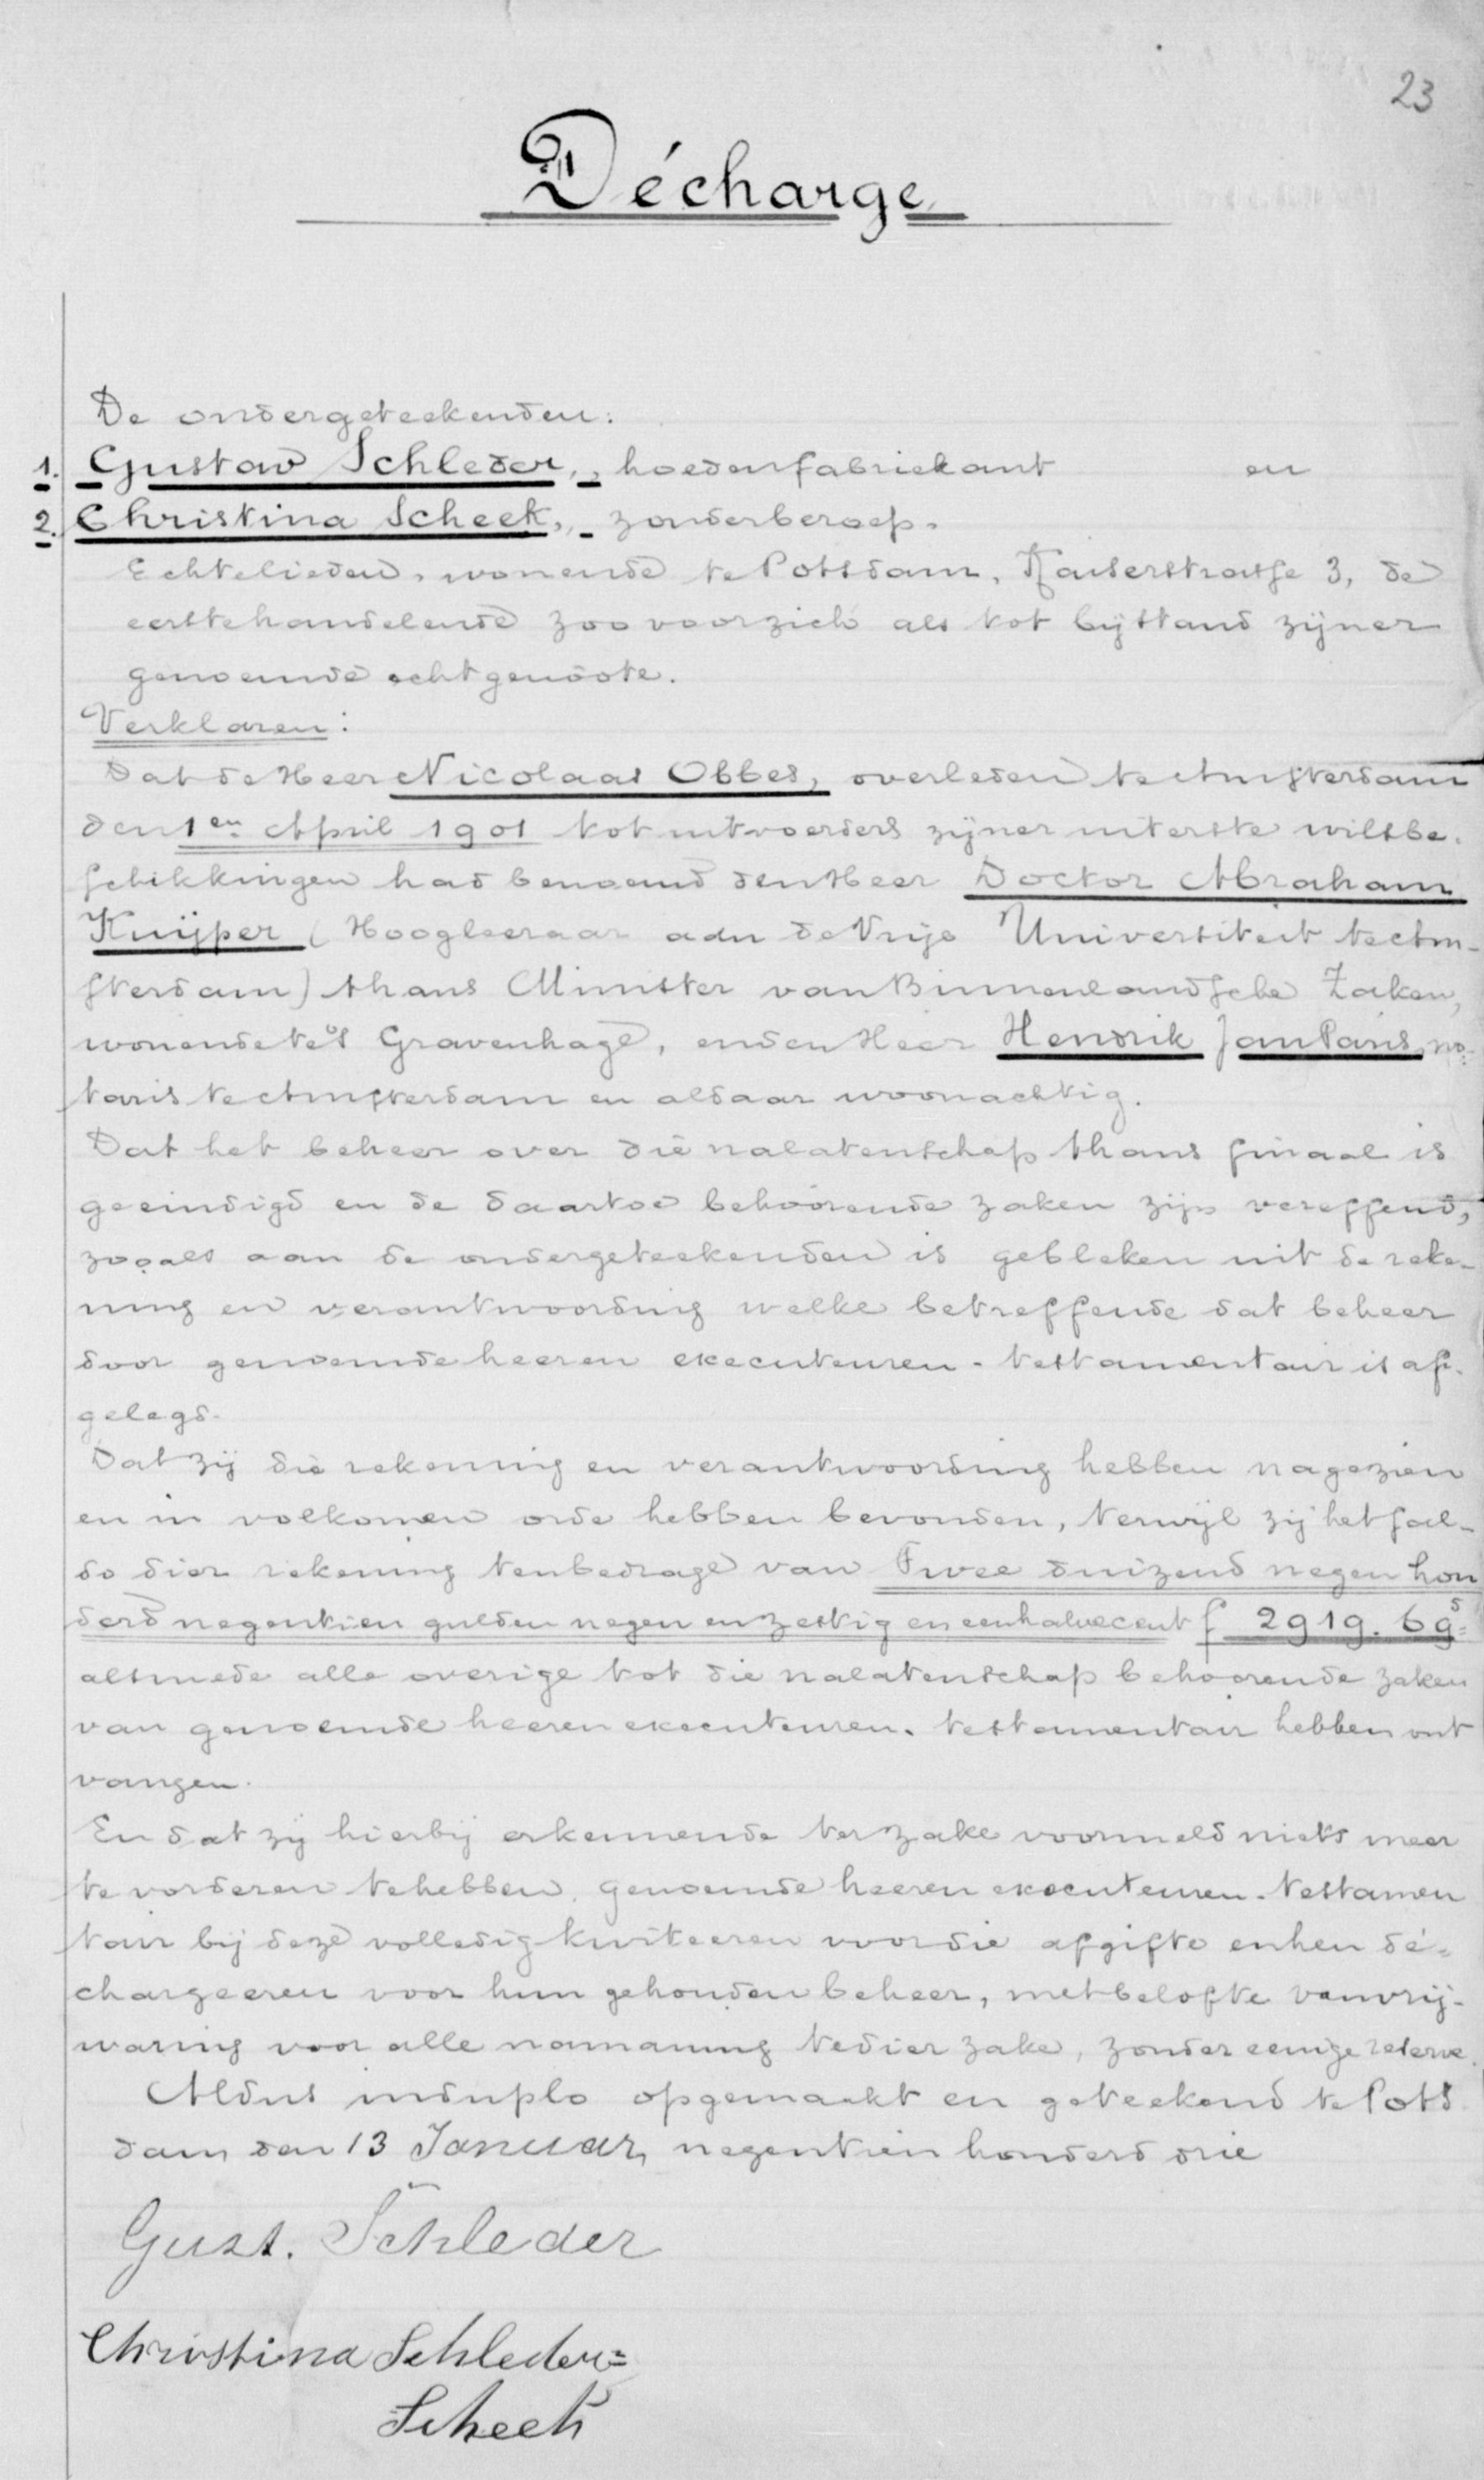 23
Décharge
De ondergeteekenden:
1. Gustav Schleder, hoedenfabriekant en
2. Christina Scheek, zonder beroep.
Echtelieden, wonende te Potsdam, Kaiserstrasse 3, de
eerste handelende zoo voor zich als tot bijstand zijner
genoemde echtgenoote.
Verklaren:
Dat de Heer Nicolaas Obbes, overleden te Amsterdam
den 1en April 1901 tot uitvoerders zijner uiterste wilsbe-
schikkingen had benoemd den Heer Doctor Abraham
Kuijper (Hoogleeraar aan de Vrije Universiteit te Am-
sterdam) thans Minister van Binnenlandsche Zaken,
wonende te 's Gravenhage, en den Heer Hendrik Jan Pans, no-
taris te Amsterdam en aldaar woonachtig.
Dat het beheer over die nalatenschap thans finaal is
geeindigd en de daartoe behoorende zaken zijn vereffend,
zooals aan de ondergeteekenden is gebleken uit de reke-
ning en verantwoording welke betreffende dat beheer
door genoemde heeren executeuren-testamentair is af-
gelegd.
Dat zij die rekening en verantwoording hebben nagezien
en in volkomen orde hebben bevonden, terwijl zij het sal-
do dier rekening ten bedrage van Twee duizend negen hon
derd negentien gulden negen en zestig en een halve cent f 2919.69⁵
alsmede alle overige tot die nalatenschap behoorende zaken
van genoemde heeren executeuren-testamentair hebben ont
vangen.
En dat zij hierbij erkennende ter zake voormeld niets meer
te vorderen te hebben, genoemde heeren executeuren-testamen
tair bij deze volledig kwiteeren voor die afgifte en hen dé-
chargeeren voor hun gehouden beheer, met belofte van vrij-
waring voor alle namaning te dier zake, zonder eenige reserve.
Aldus in duplo opgemaakt en geteekend te Pots
dam den 13 Januar, negentien honderd drie
Gust. Schleder
Christina Schleder=
Scheek